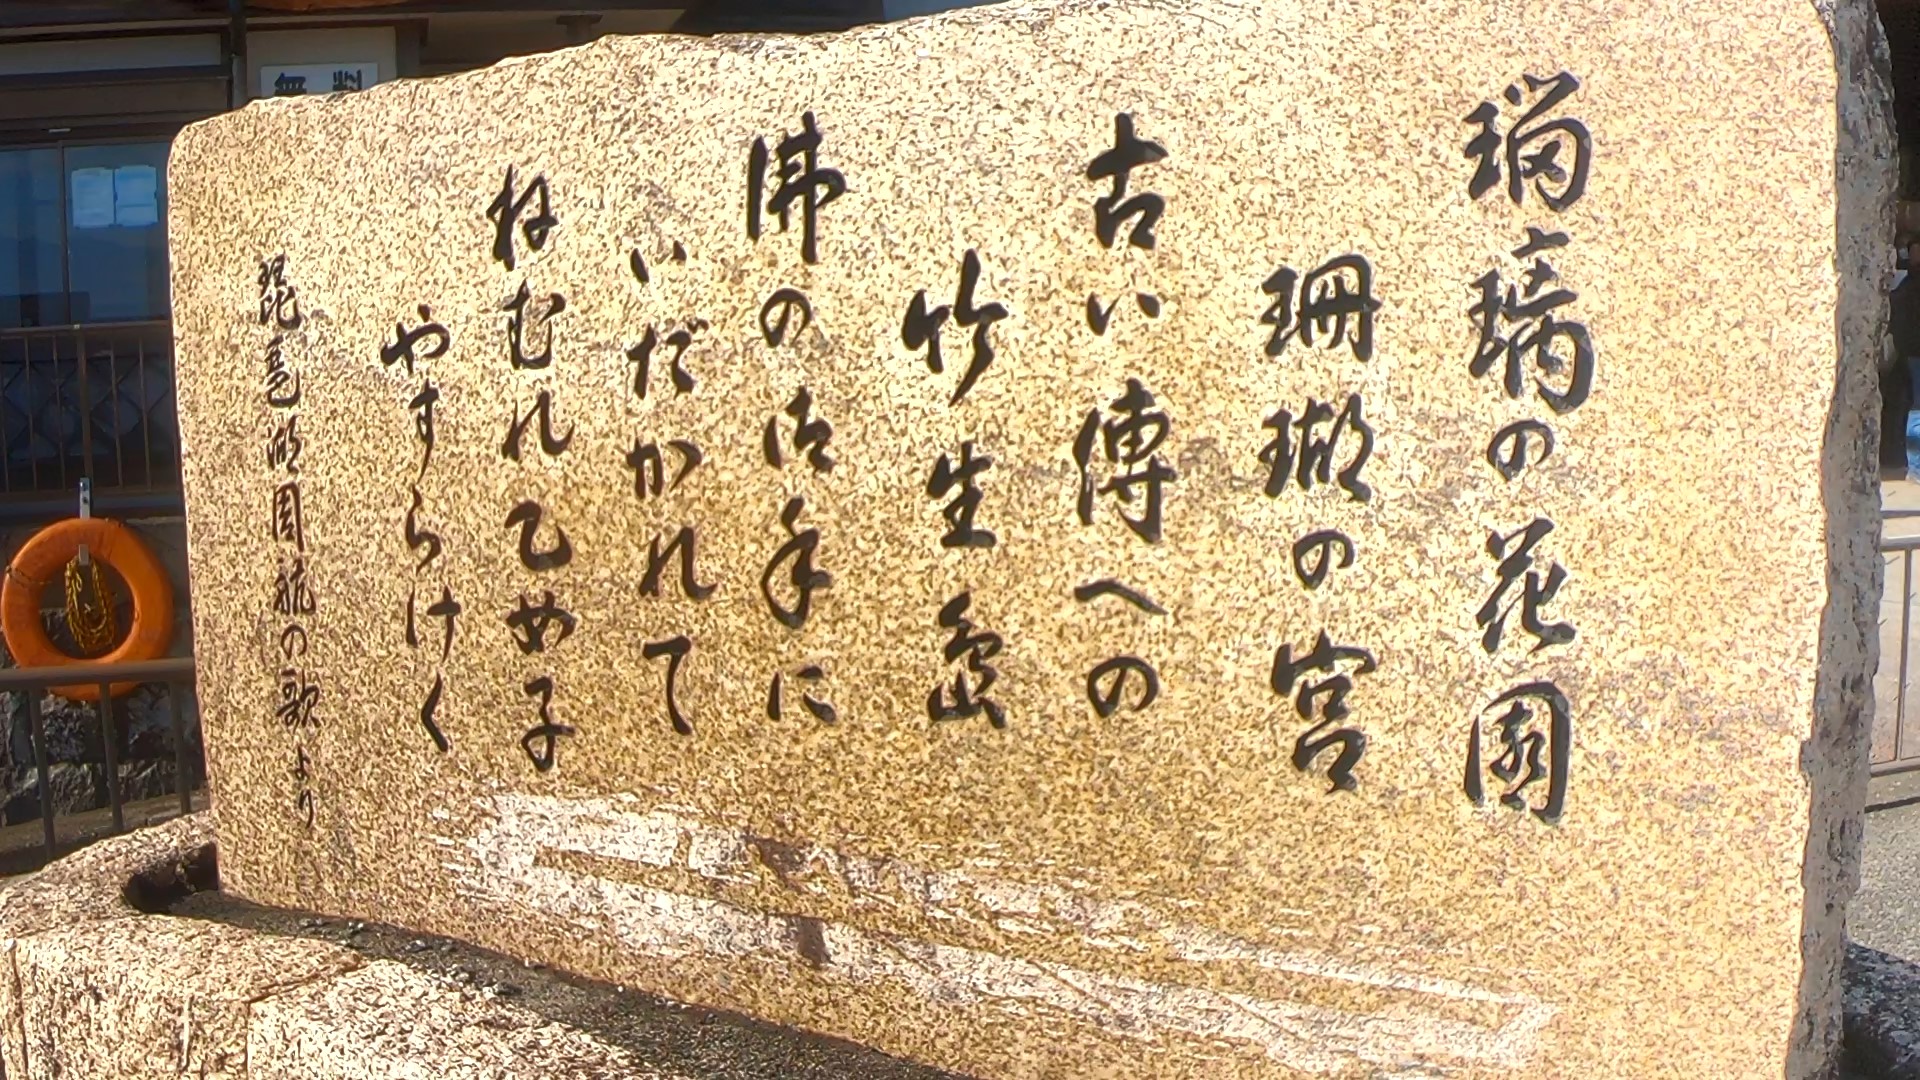 瑠璃の花園
珊瑚の宮
古い傳への
竹生島
佛の御手に
いだかれて
ねむれ乙め子
やすらけく
琵琶湖周航の歌より
無料